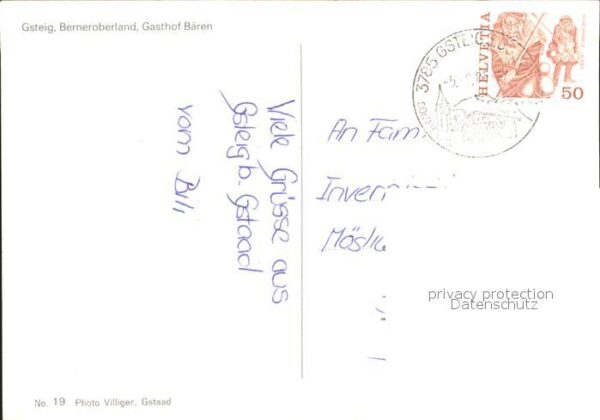 Gsteig, Berneroberland, Gasthof Bären
Viele Grüsse aus
Gsteig b. Gstaad
vom Bili
3785 GSTEIG
HELVETIA
50
An Fam
Inver
Mösli
privacy protection
Datenschutz
No. 19 Photo Villiger, Gstaad